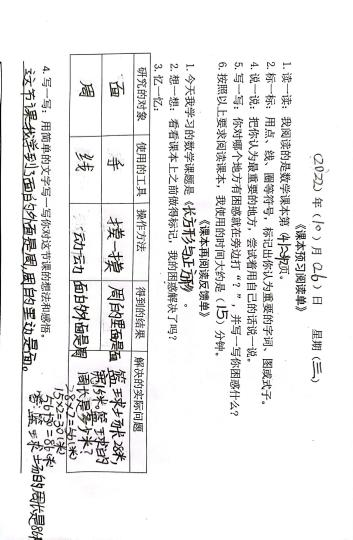 2020年(10)月(26)日 星期(三)
《课本预习阅读单》
1. 读一读：我阅读的是数学课本第(41-42)页。
2. 标一标：用点、线、圈等符号，标记出你认为重要的字词、图或式子。
4. 说一说：把你认为最重要的地方，尝试着用自己的话说一说。
5. 写一写：你对哪个地方有困惑就在旁边打“？”，并写一写你困惑什么？
6. 按照以上要求阅读课本，我使用的时间大约是(15)分钟。
《课本再阅读反馈单》
1. 今天我学习的数学课题是《长方形与正方形》。
2. 想一想：看看课本上之前做得标记，我的困惑解决了吗？
3. 忆一忆：
研究的对象 使用的工具 操作方法 得到的结果 解决的实际问题
面 手 摸一摸 周的里面是面 篮球场长28米,宽15米,篮球场的周长是多少米?
周 线 动动 面的外面是周 28×2=56(米)
15×2=30(米)
56+30=86(米)
答:篮球场的周长是86
4. 写一写：用简单的文字写一写你对这节课的想法和感悟。
这节课我学到了面的外面是周,周的里边是面。